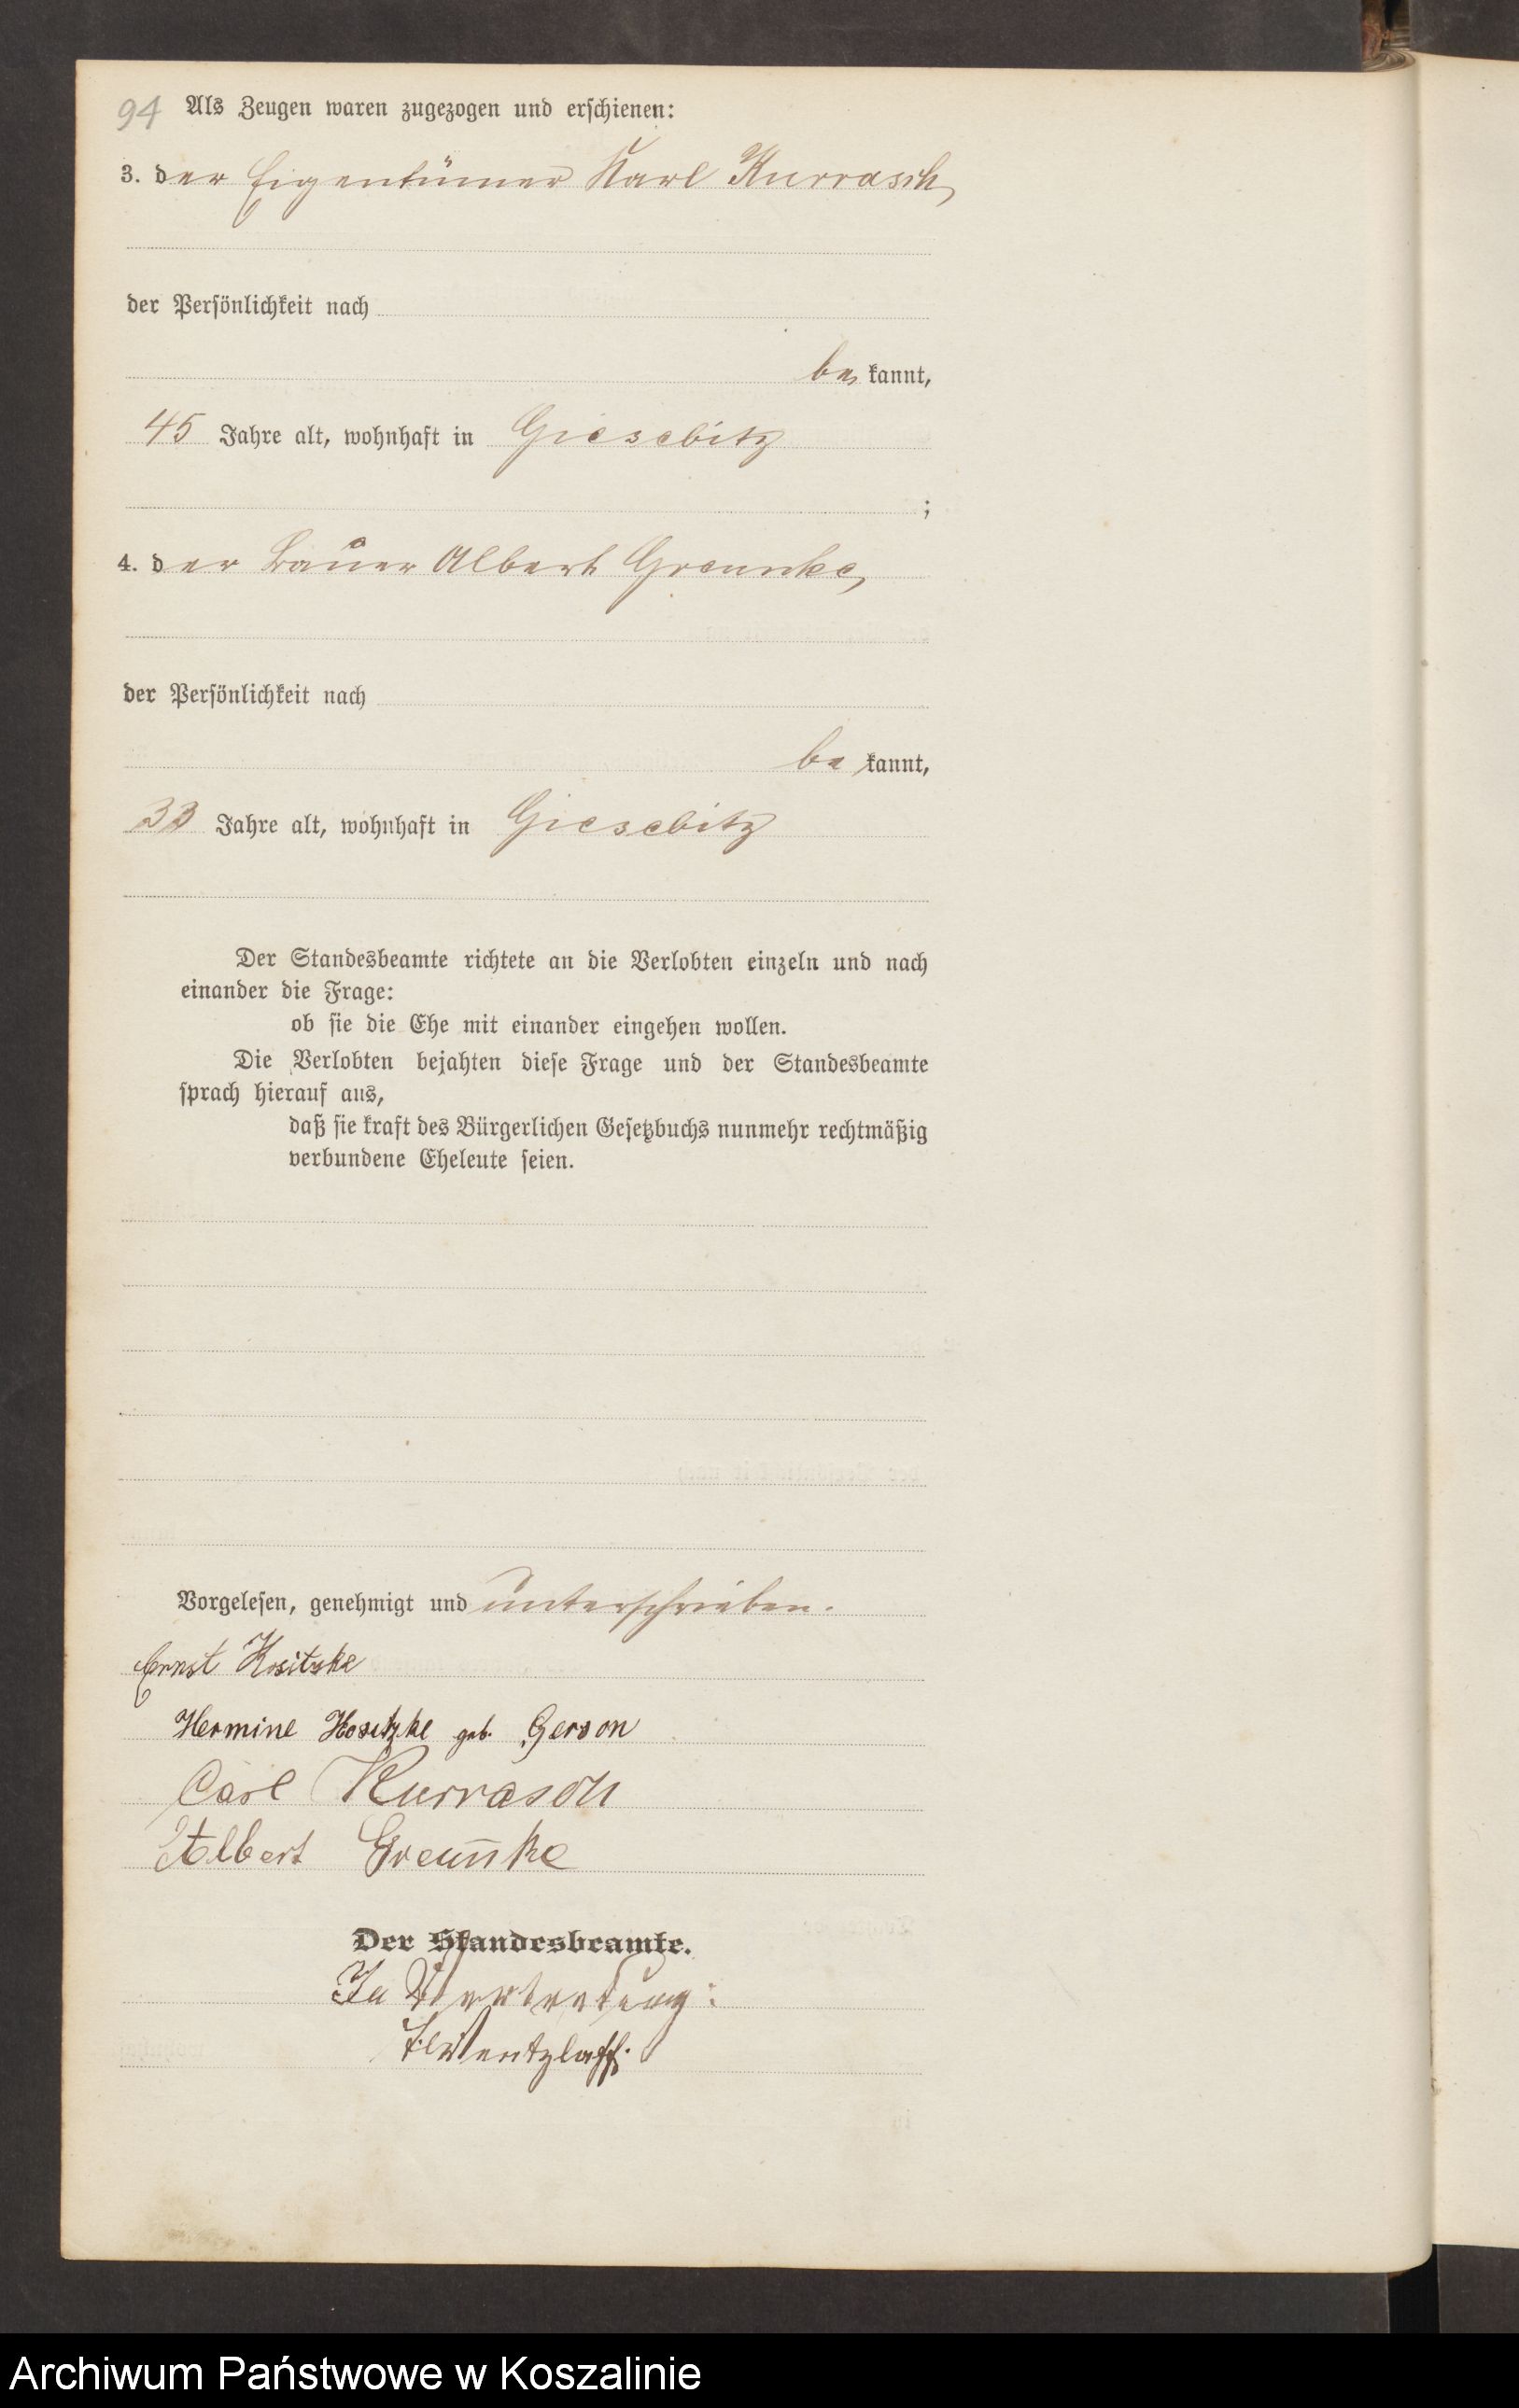 94 Als Zeugen waren zugezogen und erschienen:
3. der Eigentümer Karl Kurrasch,
der Persönlichkeit nach
be kannt,
45 Jahre alt, wohnhaft in Giesebitz
;
4. der Bauer Albert Greunke,
der Persönlichkeit nach
be kannt,
33 Jahre alt, wohnhaft in Giesebitz
Der Standesbeamte richtete an die Verlobten einzeln und nach
einander die Frage:
ob sie die Ehe mit einander eingehen wollen.
Die Verlobten bejahten diese Frage und der Standesbeamte
sprach hierauf aus,
daß sie kraft des Bürgerlichen Gesetzbuchs nunmehr rechtmäßig
verbundene Eheleute seien.
Vorgelesen, genehmigt und unterschrieben.
Ernst Kositzke
Hermine Kositzke geb. Gerson
Carl Kurrasch
Albert Greunke
Der Standesbeamte.
In Vertretung:
Wentzlaff.
Archiwum Państwowe w Koszalinie